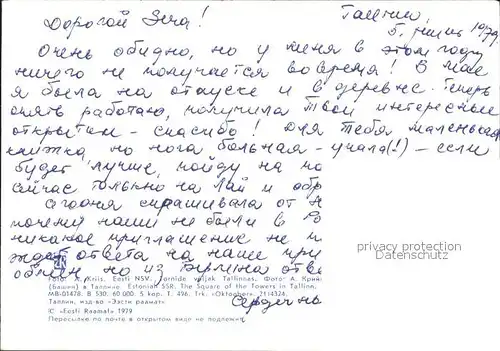 Дорогой Зеча!
Таллин,
5. июнь 1979
Очень обидно, но у меня в этом году
ничего не получается вовремя! В мае
я была на отпуске и в деревне. Теперь
опять работаю, получила твои интересные
открытки - спасибо! Для тебя маленькая
книжка, но нога больная - упала(!) - если
будет лучше, пойду на по
сичас только на Лай и обр
агодня спрашивала от
почему наши не были в Ро
никакое приглашение не п
ждет ответа на наше при
обмен, но из Берлина отве
Сердечно
privacy protection
Datenschutz
Foto: A. Kriis. Eesti NSV. Tornide väljak Tallinnas. Фото: А. Криис
(Башни) в Таллине. Estonian SSR. The Square of the Towers in Tallinn.
MB-01478. B 530. 60 000. 5 kop. T. 496. Trk. «Oktoober». 21+4324.
Таллин, изд-во «Ээсти раамат»
© «Eesti Raamat» 1979
Пересылке по почте в открытом виде не подлежит